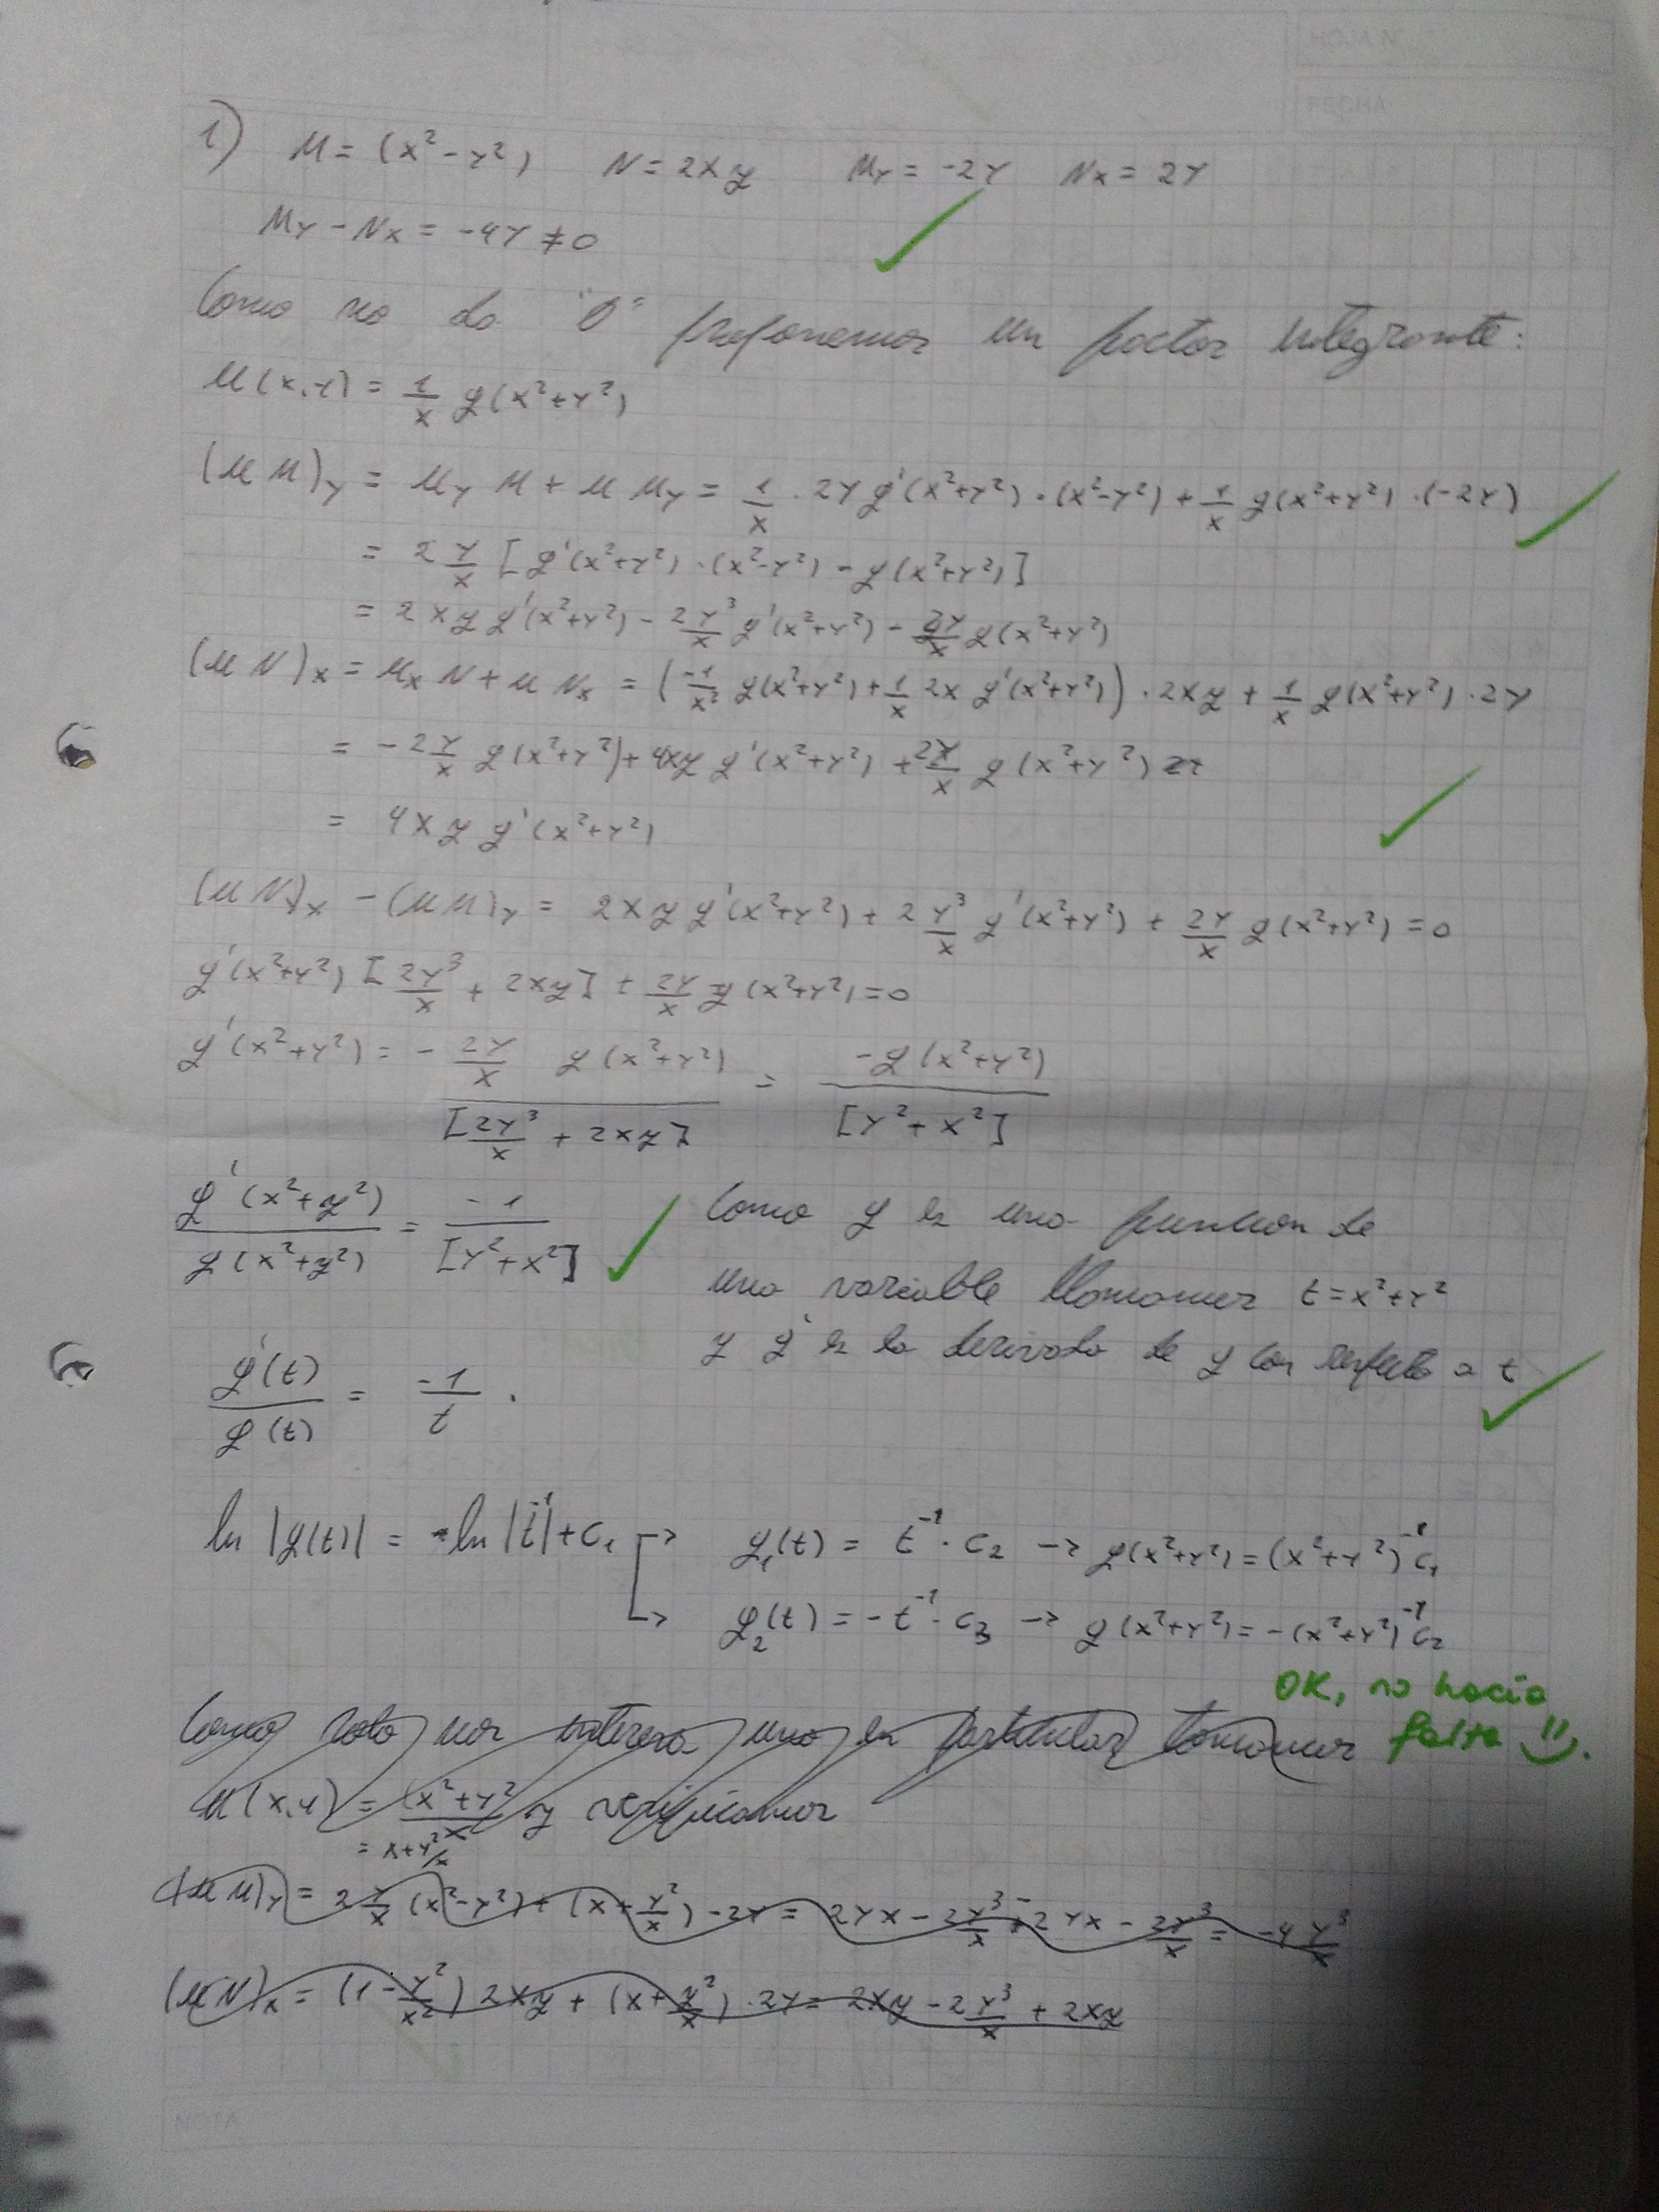 HOJA Nº
FECHA
1) M = (x² - y²) N = 2xy My = -2y Nx = 2y
My - Nx = -4y ≠ 0
Como no da "0" proponemos un factor integrante:
μ(x,y) = 1/x g(x²+y²)
(μM)y = μy M + μ My = 1/x · 2y g'(x²+y²) · (x²-y²) + 1/x g(x²+y²) · (-2y)
= 2 y/x [g'(x²+y²) · (x²-y²) - g(x²+y²)]
= 2xy g'(x²+y²) - 2y³/x g'(x²+y²) - 2y/x g(x²+y²)
(μN)x = μx N + μ Nx = (-1/x² g(x²+y²) + 1/x 2x g'(x²+y²)) · 2xy + 1/x g(x²+y²) · 2y
= -2 y/x g(x²+y²) + 4xy g'(x²+y²) + 2y/x g(x²+y²)
= 4xy g'(x²+y²)
(μN)x - (μM)y = 2xy g'(x²+y²) + 2 y³/x g'(x²+y²) + 2y/x g(x²+y²) = 0
g'(x²+y²) [2y³/x + 2xy] + 2y/x g(x²+y²) = 0
g'(x²+y²) = - 2y/x g(x²+y²) / [2y³/x + 2xy] = -g(x²+y²) / [y²+x²]
g'(x²+y²) / g(x²+y²) = -1 / [y²+x²]
Como g es una funcion de
una variable llamamos t = x²+y²
y g' es la derivada de g con respecto a t
g'(t) / g(t) = -1/t .
ln |g(t)| = ln |t⁻¹| + C₁ → g₁(t) = t⁻¹ · C₂ → g(x²+y²) = (x²+y²)⁻¹ C₁
→ g₂(t) = -t⁻¹ · C₃ → g(x²+y²) = -(x²+y²)⁻¹ C₂
OK, no hacía
falta
Como solo nos interesa uno en particular tomamos
μ(x,y) = (x²+y²)/x y verificamos
= x + y²/x
(μM)y = 2 y/x (x²-y²) + (x + y²/x) - 2y = 2yx - 2y³/x - 2yx - 2y³/x = -4 y³/x
(μN)x = (1 - y²/x²) 2xy + (x + y²/x) · 2y = 2xy - 2y³/x + 2xy
NOTA